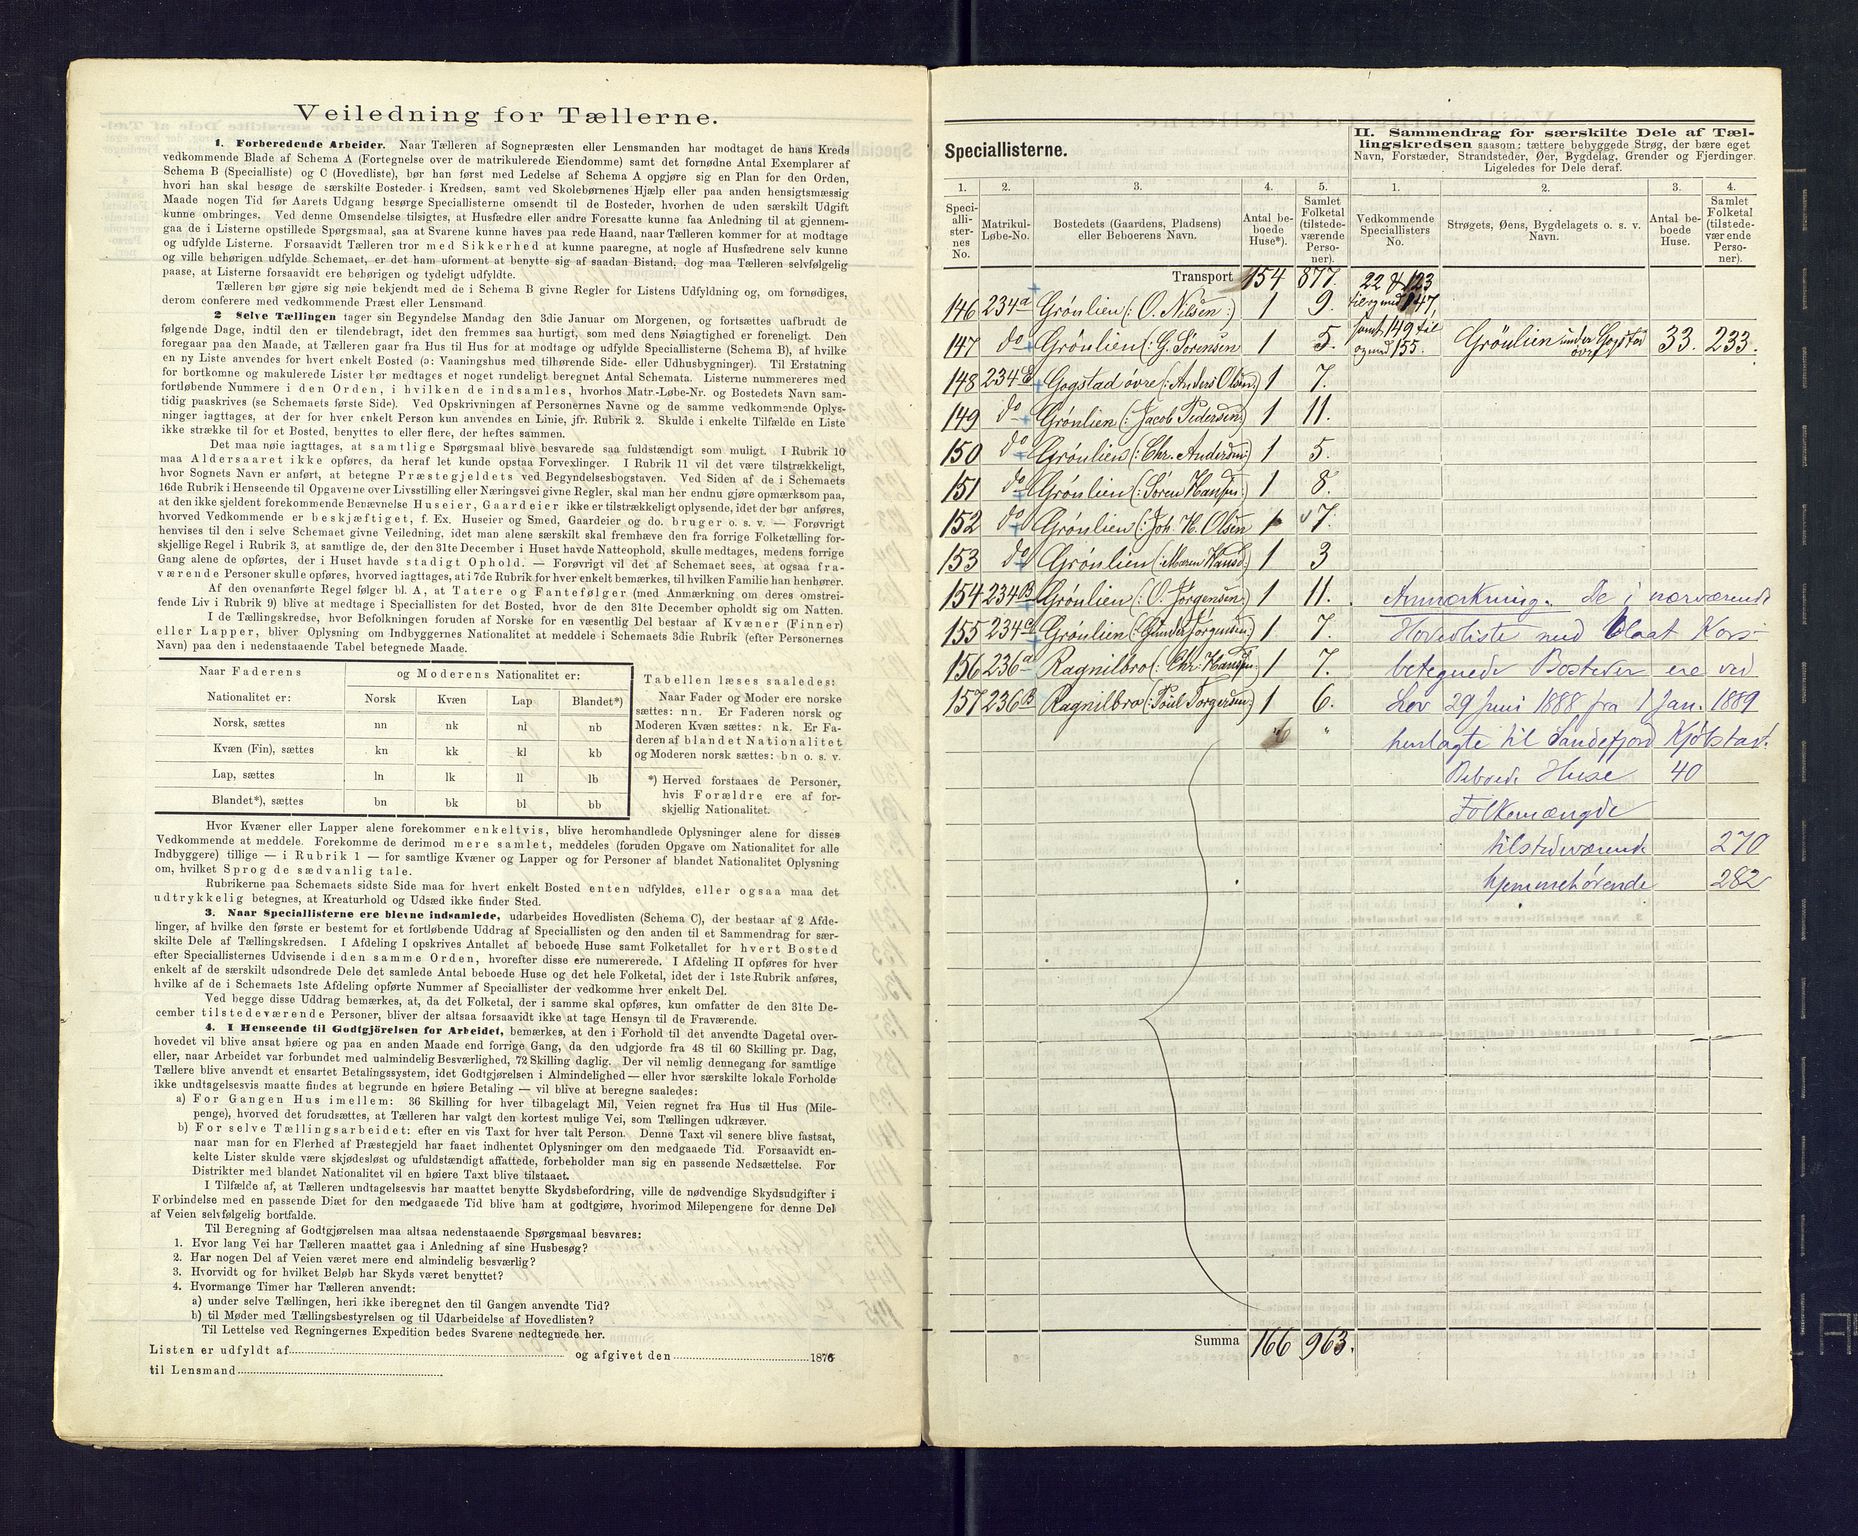 Veiledning for Tællerne.
1. Forberedende Arbeider. Naar Tælleren af Sognepræsten eller Lensmanden har modtaget de hans Kreds
vedkommende Blade af Schema A (Fortegnelse over de matrikulerede Eiendomme) samt det fornødne Antal Exemplarer af
Schema B (Specialliste) og C (Hovedliste), bør han først med Ledelse af Schema A opgjøre sig en Plan for den Orden,
hvori han skal besøge de særskilte Bosteder i Kredsen, samt ved Skolebørnenes Hjælp eller paa anden hensigtsmæssig
Maade nogen Tid før Aarets Udgang besørge Speciallisterne omsendt til de Bosteder, hvorhen de uden særskilt Udgift
kunne ombringes. Ved denne Omsendelse tilsigtes, at Husfædre eller andre Foresatte kunne faa Anledning til at gjennem-
gaa de i Listerne opstillede Spørgsmaal, saa at Svarene kunne haves paa rede Haand, naar Tælleren kommer for at modtage
og udfylde Listerne. Forsaavidt Tælleren tror med Sikkerhed at kunne paaregne, at nogle af Husfædrene selv kunne
og ville behørigen udfylde Schemaet, er det ham uforment at benytte sig af saadan Bistand, dog maa Tælleren selvfølgelig
paase, at Listerne forsaavidt ere behørigen og tydeligt udfyldte.
Tælleren bør gjøre sig nøie bekjendt med de i Schema B givne Regler for Listens Udfyldning og, om fornødiges,
derom conferere med vedkommende Præst eller Lensmand.
2 Selve Tællingen tager sin Begyndelse Mandag den 3die Januar om Morgenen, og fortsættes uafbrudt de
følgende Dage, indtil den er tilendebragt, idet den fremmes saa hurtigt, som med dens Nøiagtighed er foreneligt. Den
foregaar paa den Maade, at Tælleren gaar fra Hus til Hus for at modtage og udfylde Speciallisterne (Schema B), af hvilke
en ny Liste anvendes for hvert enkelt Bosted (ɔ: Vaaningshus med tilhørende Side- eller Udhusbygninger). Til Erstatning
for bortkomne og makulerede Lister bør medtages et noget rundeligt beregnet Antal Schemata. Listerne nummereres med
fortløbende Nummere i den Orden, i hvilken de indsamles, hvorhos Matr.-Løbe-Nr. og Bostedets Navn sam-
tidig paaskrives (se Schemaets første Side). Ved Opskrivningen af Personernes Navne og de samme vedkommende Oplys-
ninger iagttages, at der for hver enkelt Person kun anvendes en Linie, jfr. Rubrik 2. Skulde i enkelte Tilfælde en Liste
ikke strække til for et Bosted, benyttes to eller flere, der heftes sammen.
Det maa nøie iagttages, at samtlige Spørgsmaal blive besvarede saa fuldstændigt som muligt. I Rubrik 10
maa Aldersaaret ikke opføres, da heraf let kunde opstaa Forvexlinger. I Rubrik 11 vil det være tilstrækkeligt,
hvor Sognets Navn er anført, at betegne Præstegjeldets ved Begyndelsesbogstaven. Ved Siden af de i Schemaets
16de Rubrik i Henseende til Opgaverne over Livsstilling eller Næringsvei givne Regler, skal man her endnu gjøre opmærksom paa,
at den ikke sjeldent forekommende Benævnelse Huseier, Gaardeier ikke er tilstrækkeligt oplysende, idet der bør anføres,
hvorved Vedkommende er beskjæftiget, f. Ex. Huseier og Smed, Gaardeier og do. bruger o. s. v. — Forøvrigt
henvises til den i selve Schemaet givne Veiledning, idet man alene særskilt skal fremhæve den fra forrige Folketælling for-
skjellige Regel i Rubrik 3, at samtlige de, der den 31te December i Huset havde Natteophold, skulle medtages, medens forrige
Gang alene de opførtes, der i Huset havde stadigt Ophold. — Forøvrigt vil det af Schemaet sees, at ogsaa fra-
værende Personer skulle opføres, hvorved iagttages, at i 7de Rubrik for hver enkelt bemærkes, til hvilken Familie han henhører.
Af den ovenanførte Regel følger bl. A, at Tatere og Fantefølger (med Anmærkning om deres omstrei-
fende Liv i Rubrik 9) blive at medtage i Speciallisten for det Bosted, hvor de den 31te December opholdt sig om Natten.
I de Tællingskredse, hvor Befolkningen foruden af Norske for en væsentlig Del bestaar af Kvæner (Finner)
eller Lapper, bliver Oplysning om Indbyggernes Nationalitet at meddele i Schemaets 3die Rubrik (efter Personernes
Navn) paa den i nedenstaaende Tabel betegnede Maade.
Naar Faderens Nationalitet er: og Moderens Nationalitet er:
Norsk Kvæn Lap Blandet*)
Norsk, sættes nn nk nl nb
Kvæn (Fin), sættes kn kk kl kb
Lap, sættes ln lk ll lb
Blandet*), sættes bn bk bl bb
Tabellen læses saaledes:
Naar Fader og Moder ere norske
sættes: nn. Er Faderen norsk og
Moderen Kvæn sættes: nk. Er Fa-
deren af blandet Nationalitet
og Moderen norsk sættes: bn o. s. v.
*) Herved forstaaes de Personer,
hvis Forældre ere af for-
skjellig Nationalitet.
Hvor Kvæner eller Lapper alene forekommer enkeltvis, blive heromhandlede Oplysninger alene for disses
Vedkommende at meddele. Forekomme de derimod mere samlet, meddeles (foruden Opgave om Nationalitet for alle
Indbyggere) tillige — i Rubrik 1 — for samtlige Kvæner og Lapper og for Personer af blandet Nationalitet Oplysning
om, hvilket Sprog de sædvanlig tale.
Rubrikerne paa Schemaets sidste Side maa for hvert enkelt Bosted enten udfyldes, eller ogsaa maa det
udtrykkelig betegnes, at Kreaturhold og Udsæd ikke finder Sted.
3. Naar Speciallisterne ere blevne indsamlede, udarbeides Hovedlisten (Schema C), der bestaar af 2 Afde-
linger, af hvilke den første er bestemt for et fortløbende Uddrag af Speciallisten og den anden til et Sammendrag for sær-
skilte Dele af Tællingskredsen. I Afdeling I opskrives Antallet af beboede Huse samt Folketallet for hvert Bosted
efter Speciallisternes Udvisende i den samme Orden, hvorefter disse ere nummererede. I Afdeling II opføres for hver
enkelt af de særskilt udsondrede Dele det samlede Antal beboede Huse og det hele Folketal, idet der i 1ste Rubrik anføres,
hvilke af de i Schemaets 1ste Afdeling opførte Nummer af Speciallister der vedkomme hver enkelt Del.
Ved begge disse Uddrag bemærkes, at, da det Folketal, der i samme skal opføres, kun omfatter de den 31te De-
cember tilstedeværende Personer, bliver der altsaa forsaavidt ikke at tage Hensyn til de Fraværende.
4. I Henseende til Godtgjörelsen for Arbeidet, bemærkes, at den i Forhold til det anvendte Dagetal over-
hovedet vil blive ansat høiere og paa en anden Maade end forrige Gang, da den udgjorde fra 48 til 60 Skilling pr. Dag,
eller, naar Arbeidet var forbundet med ualmindelig Besværlighed, 72 Skilling daglig. Der vil nemlig dennegang for samtlige
Tællere blive anvendt et ensartet Betalingssystem, idet Godtgjörelsen i Almindelighed — eller hvor særskilte lokale Forholde
ikke undtagelsesvis maatte findes at begrunde en høiere Betaling — vil blive at beregne saaledes:
a) For Gangen Hus imellem: 36 Skilling for hver tilbagelagt Mil, Veien regnet fra Hus til Hus (Mile-
penge), hvorved det forudsættes, at Tælleren har valgt den kortest mulige Vei, som Tællingen udkræver.
b) For selve Tællingsarbeidet: efter en vis Taxt for hver talt Person. Denne Taxt vil senere blive fastsat,
naar man for en Flerhed af Præstegjeld har faaet indhentet Oplysninger om den medgaaede Tid. Forsaavidt en-
kelte Lister skulde være skjødesløst og ufuldstændigt affattede, forbeholder man sig en passende Nedsættelse. For
Distrikter med blandet Nationalitet vil en høiere Taxt blive tilstaaet.
I Tilfælde af, at Tælleren undtagelsesvis har maattet benytte Skydsbefordring, ville de nødvendige Skydsudgifter i
Forbindelse med en passende Diæt for den medgaaede Tid blive ham at godtgjøre, hvorimod Milepengene for denne Del
af Veien selvfølgelig bortfalde.
Til Beregning af Godtgjörelsen maa altsaa nedenstaaende Spørgsmaal besvares:
1. Hvor lang Vei har Tælleren maattet gaa i Anledning af sine Husbesøg?
2. Har nogen Del af Veien været mere end almindelig besværlig?
3. Hvorvidt og for hvilket Beløb har Skyds været benyttet?
4. Hvormange Timer har Tælleren anvendt:
a) under selve Tællingen, heri ikke iberegnet den til Gangen anvendte Tid?
b) til Møder med Tællingsbestyrelsen og til Udarbeidelse af Hovedlisten?
Til Lettelse ved Regningernes Expedition bedes Svarene nedtegnede her.
Listen er udfyldt af og afgivet den 1876
til Lensmand
Speciallisterne.
II. Sammendrag for særskilte Dele af Tæl-
lingskredsen saasom: tættere bebyggede Strøg, der bære eget
Navn, Forstæder, Strandsteder, Øer, Bygdelag, Grender og Fjerdinger.
Ligeledes for Dele deraf.
1. 2. 3. 4. 5. 1. 2. 3. 4.
Speci-alli-ster-nes No.
Matrikul-Løbe-No.
Bostedets (Gaardens, Pladsens) eller Beboerens Navn.
Antal be-boede Huse*).
Samlet Folketal (tilstede-værende Perso-ner).
Vedkommende Speciallisters No.
Strøgets, Øens, Bygdelagets o. s. v. Navn.
Antal be-boede Huse.
Samlet Folketal (tilstede-værende Perso-ner).
Transport 154 877. 22 & 123
146 234a Grönlien (: O. Nilsen :) 1 9. til og med 147,
147 do Grönlien (: G. Sörensen 1 5. samt 149 til og med 155. Grönlien under Gogstad övre 33. 233.
148 234E Gogstad övre (: Anders Olsen) 1 7.
149 do Grönlien (: Jacob Pedersen) 1 11.
150 do Grönlien (: Chr. Andersen:) 1 5.
151 do Grönlien (: Sören Hansen:) 1 8.
152 do Grönlien (: Joh. H. Olsen 1 7.
153 do Grönlien (: Maren Hansd. 1 3
154 234B Grönlien (: O. Jörgensen. 1 11. Anmærkning. De i nærværende
155 234C Grönlien (: Gunder Jörgensen) 1 7. Hovedliste med blaat Kors
156 236a Ragnilbro (: Chr. Hansen 1 7. betegnede Bosteder ere ved
157 236B Ragnilbro (: Poul Torgersen:) 1 6. Lov 29 Juni 1888 fra 1 Jan. 1889
henlagte til Sandefjord Kjöbstad.
Beboede Huse 40
Folkemængde
tilstedeværende 270
hjemmehörende 282
Summa 166 963.